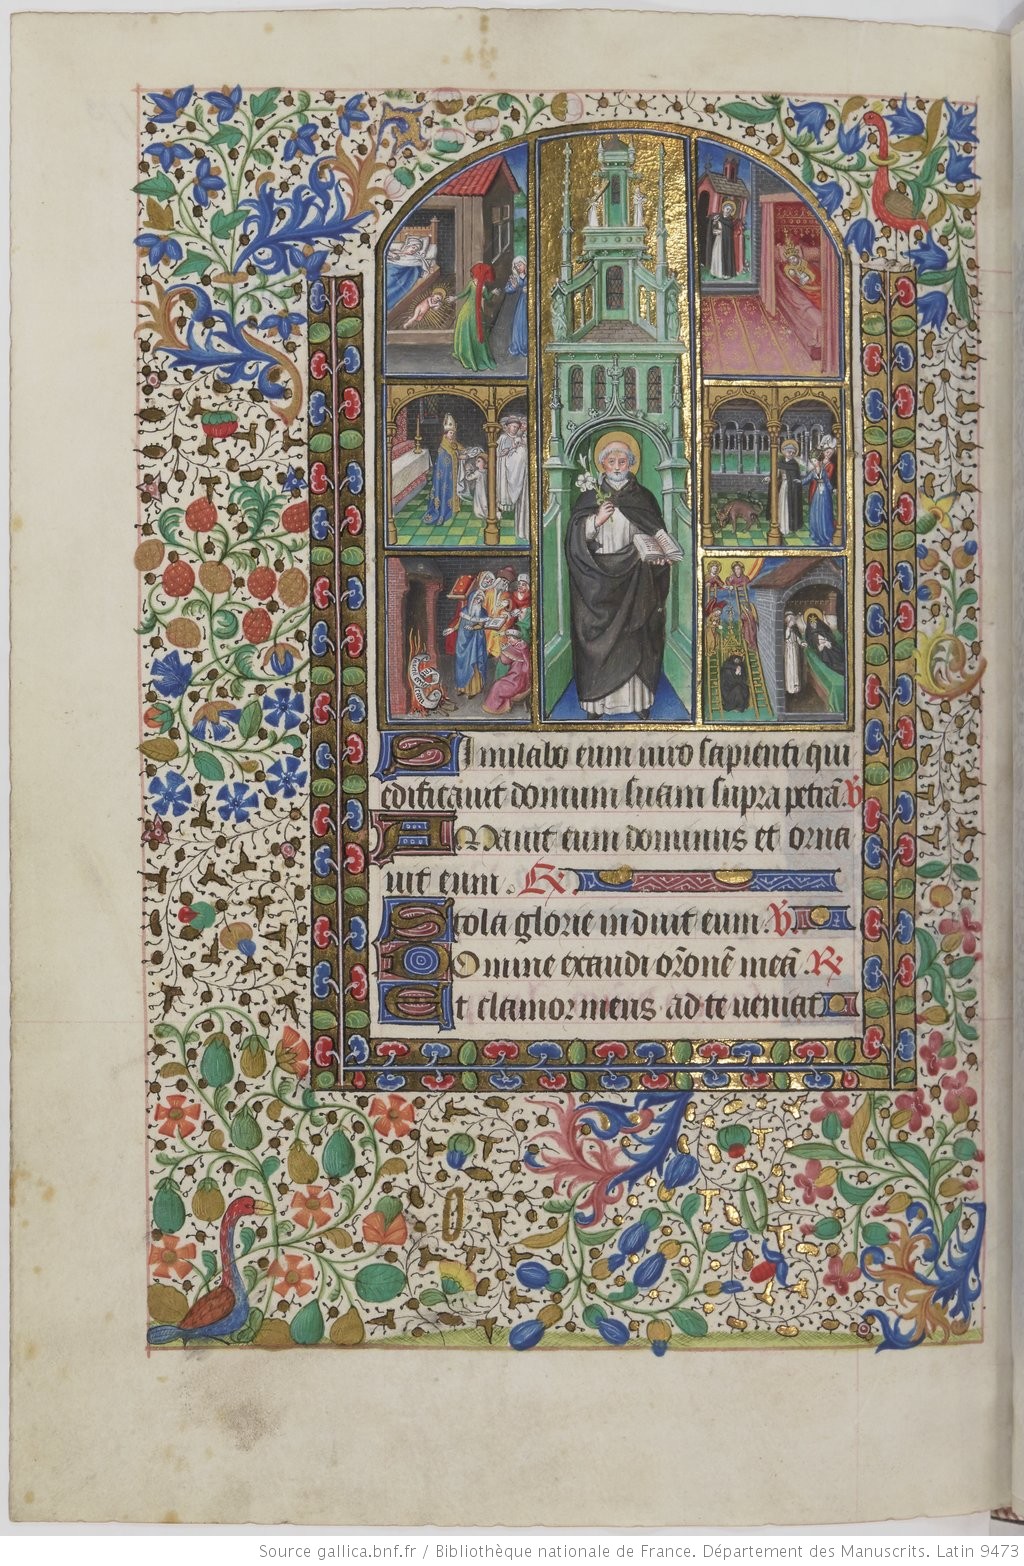 Similabo eum uiro sapienti qui
edificauit domum suam supra petrã ℣
Amauit eum dominus et orna
uit eum. ℟
Stola glorie induit eum. ℣
Domine exaudi orõnẽ meã. ℟
Et clamor meus ad te ueniat
Source gallica.bnf.fr / Bibliothèque nationale de France. Département des Manuscrits. Latin 9473